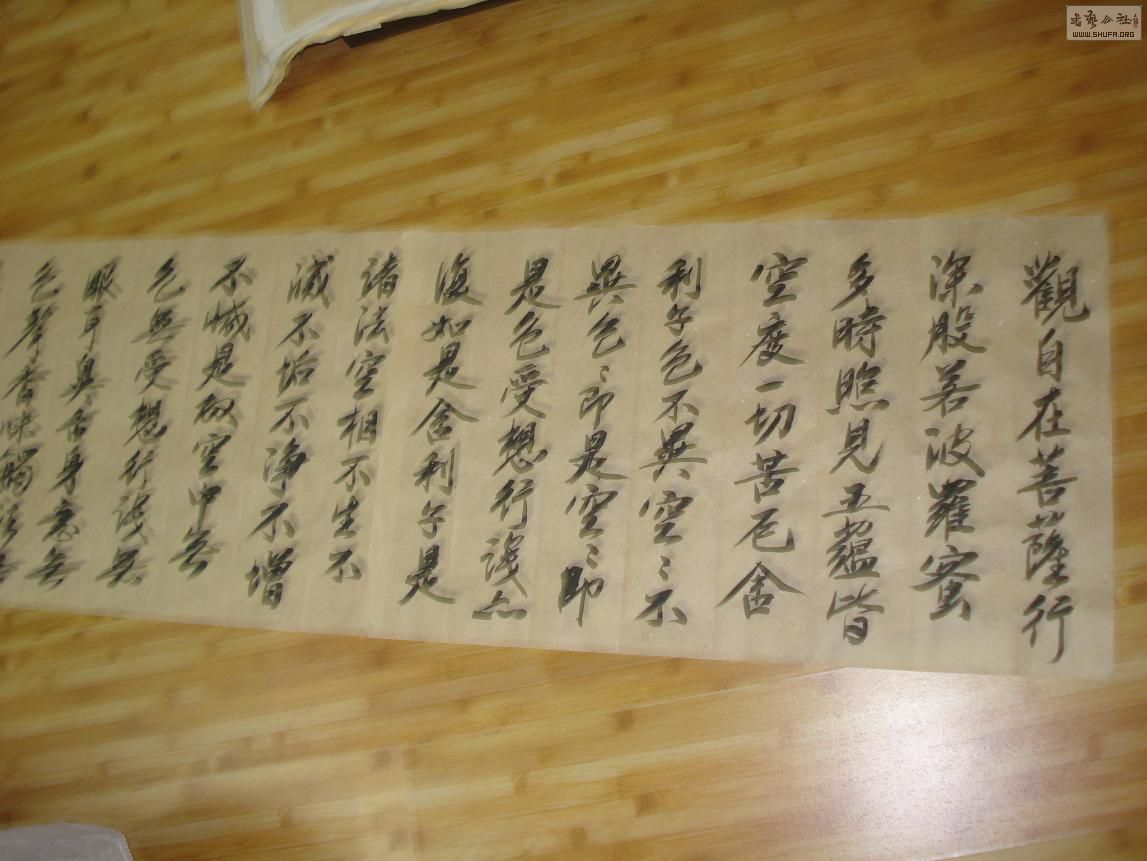 觀自在菩薩行
深般若波羅蜜
多時照見五蘊皆
空度一切苦厄舍
利子色不異空〻不
異色〻即是空〻即
是色受想行識亦
復如是舍利子是
諸法空相不生不
滅不垢不淨不增
不減是故空中無
色無受想行識無
眼耳鼻舌身意無
色聲香味觸法
書藝公社
WWW.SHUFA.ORG